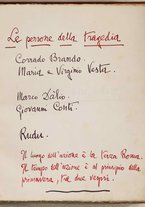 Le persone della tragedia
Corrado Brando.
Maria e Virginio Vesta.
Marco Dàlio.
Giovanni Conti.
Rudu.
Il luogo dell'azione è la terza Roma.
Il tempo dell'azione è al principio della
primavera, tra due vespri.